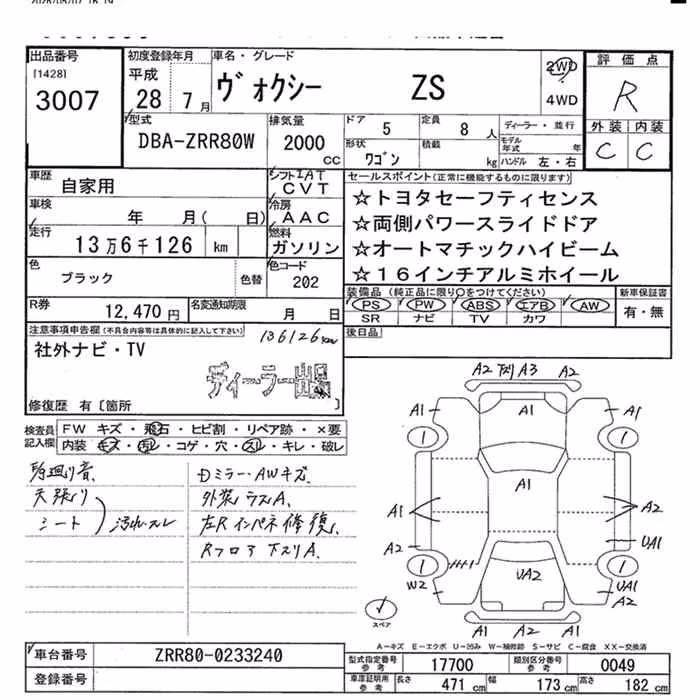 出品番号
[1428]
3007
初度登録年月
平成
28年 7月
車名・グレード
ヴォクシー ZS
2WD
4WD
評価点
R
外装 内装
C C
型式
DBA-ZRR80W
排気量
2000
cc
ドア 5
定員 8 人
ディーラー・並行
形状 ワゴン
積載 kg
モデル年式 年
ハンドル 左・右
車歴
自家用
シフト IAT
CVT
車検
年 月( 日)
冷房
AAC
走行
13万6千126 km
燃料
ガソリン
色
ブラック
色替
色コード
202
R券 12,470円
名変通知期限 月 日
セールスポイント(正常に機能するものに限ります)
☆トヨタセーフティセンス
☆両側パワースライドドア
☆オートマチックハイビーム
☆16インチアルミホイール
装備品(純正品に限り○をつけてください)
PS PW ABS エアB AW
SR ナビ TV カワ
新車保証書
有・無
後日品
注意事項申告欄(不具合内容等は具体的に記入して下さい)
136126km
社外ナビ・TV
ディーラー出品
修復歴 有〔箇所 〕
検査員記入欄
FW キズ・飛石・ヒビ割・リペア跡・×要
内装 キズ・汚レ・コゲ・穴・スレ・キレ・破レ
天張り
シート
汚れスレ
Dミラー・AWキズ
外装ラスA
左Rインパネ修復
Rフロア下スリA
A2 下スリ A3 A2
A1 A1 A1
1 1
A1
A1 A2
A2 UA1
1 1
W2 UA2 UA1
A2
A1 A2 A1
スペア
A-キズ E-エクボ U-凹み W-補修跡 S-サビ C-腐食 XX-交換済
車台番号 ZRR80-0233240
登録番号
型式指定番号参考 17700
類別区分番号参考 0049
車庫証明用参考 長さ 471cm 幅 173cm 高さ 182cm